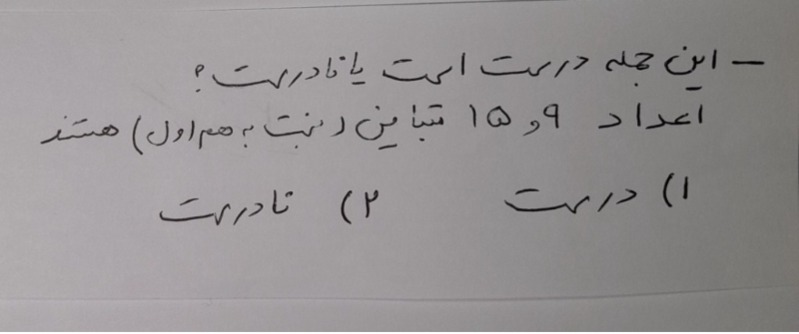 - این جمله درست است یا نادرست؟
اعداد ۹ و ۱۵ متباین (نسبت به هم اول) هستند
۱) درست ۲) نادرست